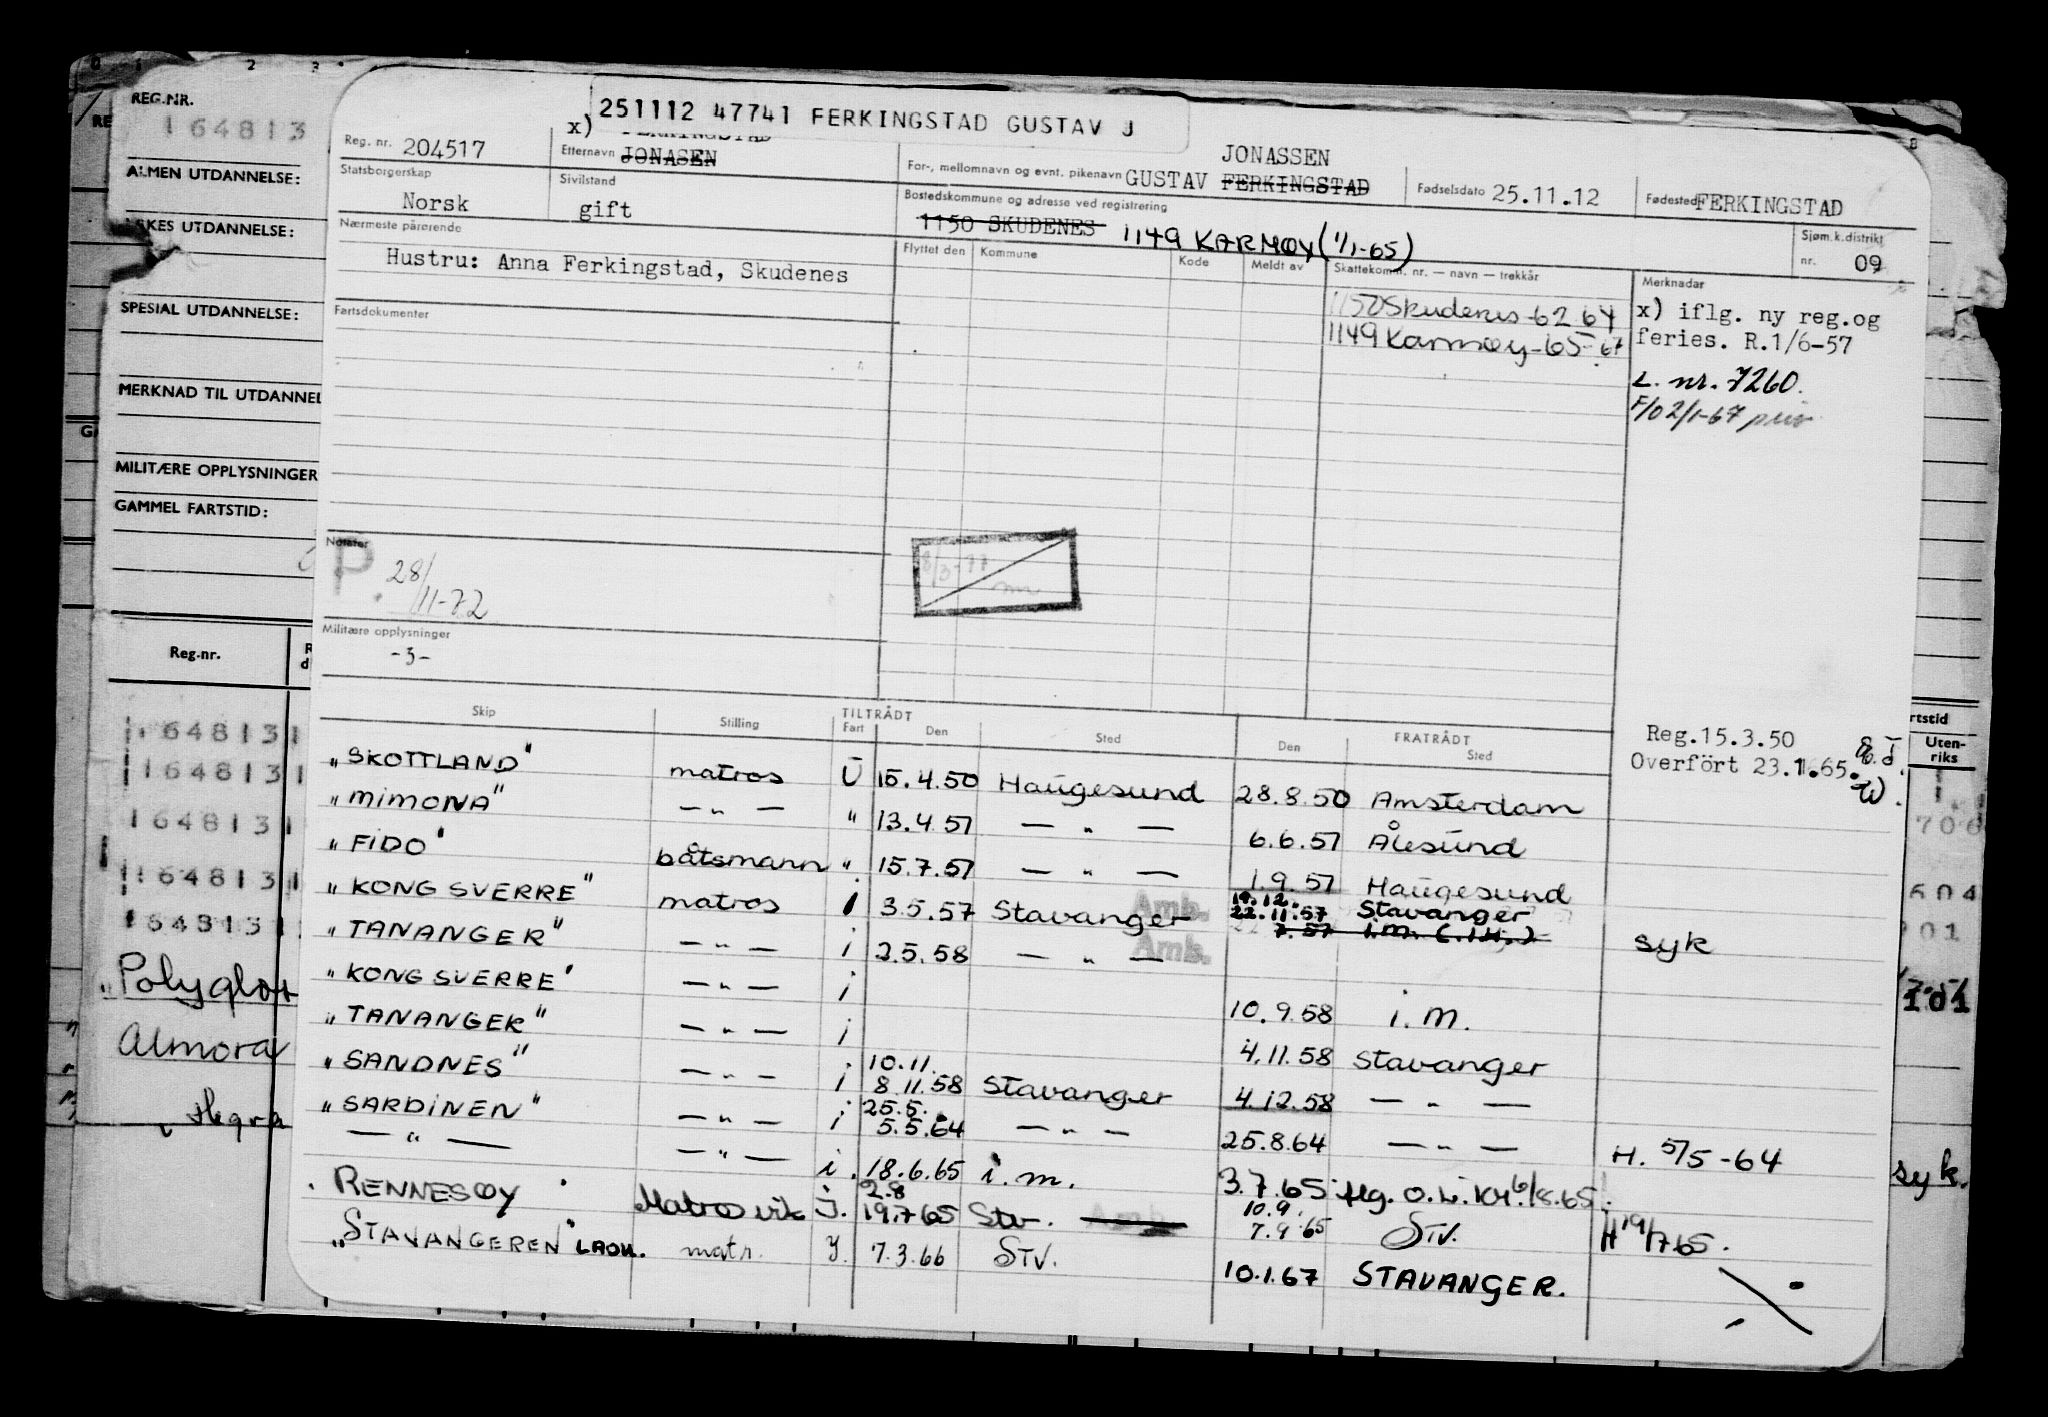 0 1 2 3
REG.NR.
164813
251112 47741 FERKINGSTAD GUSTAV J
x) FERKINGSTAD
Reg. nr. 204517 Etternavn JONASEN
JONASSEN
For-, mellomnavn og evnt. pikenavn GUSTAV FERKINGSTAD
Fødselsdato 25.11.12 Fødested FERKINGSTAD
ALMEN UTDANNELSE:
Statsborgerskap Norsk Sivilstand gift
Bostedskommune og adresse ved registrering
1150 SKUDENES 1149 KARMØY (1/1-65)
Sjøm.k.distrikt nr. 09
UTDANNELSE:
Nærmeste pårørende
Hustru: Anna Ferkingstad, Skudenes
Flyttet den Kommune Kode Meldt av Skattekomm. nr. — navn — trekkår Merknadar
1150 Skudenes -62 64
1149 Karmøy-65-67
x) iflg. ny reg.og
feries. R.1/6-57
L. nr. 7260.
F/O 2/1-67
SPESIAL UTDANNELSE:
Fartsdokumenter
MERKNAD TIL UTDANNEL
MILITÆRE OPPLYSNINGER
GAMMEL FARTSTID:
Notater
P. 28/11-72
8/3-77
Militære opplysninger
-3-
Reg.nr.
Reg.15.3.50
Overfört 23.1.65.
Skip Stilling TILTRÅDT Fart Den Sted FRATRÅDT Den Sted
rtstid
Uten-
riks
"SKOTTLAND" matros U 15.4.50 Haugesund 28.8.50 Amsterdam
"MIMONA" — " — " 13.4.51 — " — 6.6.51 Ålesund
"FIDO" båtsmann " 15.7.51 — " — 1.9.51 Haugesund
"KONG SVERRE" matros i 3.5.57 Stavanger Amb. 19.12. 22.11.57 Stavanger
7.57 i.m. syk
"TANANGER" — " — i 2.5.58 — " — Amb.
"KONG SVERRE" — " — i 10.9.58 i.m.
"TANANGER" — " — i 4.11.58 Stavanger
"SANDNES" — " — i 10.11. 8.11.58 Stavanger 4.12.58 — " —
"SARDINEN" — " — i 25.5. 5.5.64 — " — 25.8.64 — " — H. 5/5-64
— " — — " — i. 18.6.65 i.m. 3.7.65
RENNESØY Matros vik I. 2.8 19.7.65 Stv. Amb. 10.9. 7.9.65 Stv. H 19/7 65.
"STAVANGEREN" matr. 7.3.66 STV. 10.1.67 STAVANGER.
164813
164813
164813
164813
164813
"Polyglot
Almora
Hegra
706
604
901
101
syk.